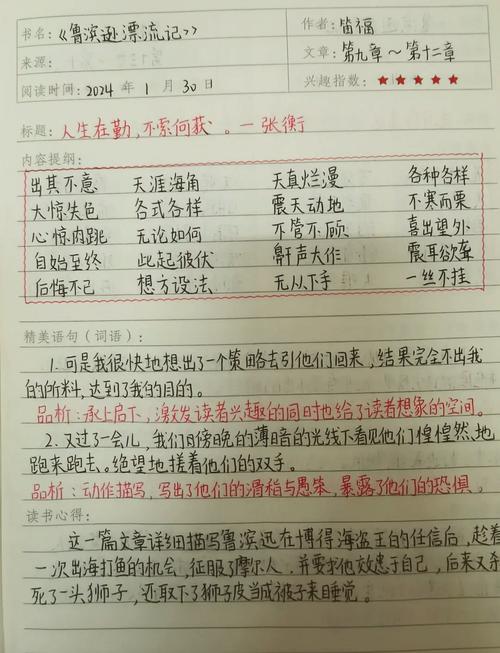 书名:《鲁滨逊漂流记》 作者:笛福
来源: 文章:第九章～第十二章
阅读时间:2024年1月30日 兴趣指数:★★★★★
标题:人生在勤,不索何获。—张衡
内容提纲:
出其不意 天涯海角 天真烂漫 各种各样
大惊失色 各式各样 震天动地 不寒而栗
心惊肉跳 无论如何 不管不顾 喜出望外
自始至终 此起彼伏 鼾声大作 震耳欲聋
后悔不已 想方设法 无从下手 一丝不挂
精美语句(词语):
1.可是我很快地想出了一个策略去引他们回来,结果完全不出我
的所料,达到了我的目的。
品析:承上启下,激发读者兴趣的同时也给了读者想象的空间。
2.又过了一会儿,我们日傍晚的薄暗的光线下看见他们惶惶然、地
跑来跑去。绝望地搓着他们的双手。
品析:动作描写,写出了他们的滑稽与愚笨,暴露了他们的恐惧。
读书心得:
这一篇文章详细描写鲁滨逊在博得海盗王的任信后,趁着
一次出海打鱼的机会,征服了摩尔人,并要求他效忠于自己,后来又杀
死了一头狮子,还取下了狮子皮当成被子来睡觉。